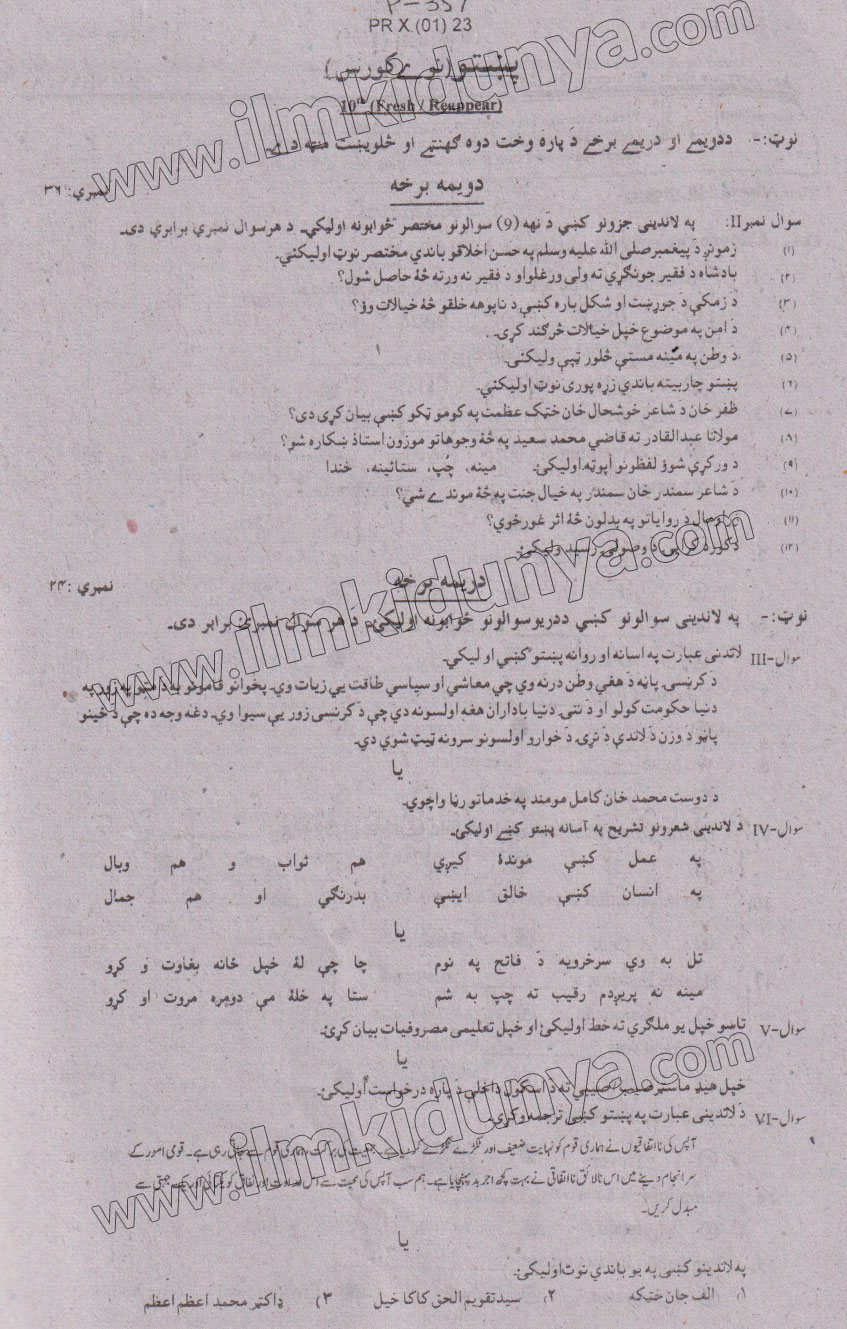 P-357
PR X (01) 23
پښتو (نوے کورس)
10th (Fresh / Reappear)
نوټ:- ددویمے او دریمے برخے دَ پاره وخت دوه ګهنټے او څلویښت منټه دے۔
دویمه برخه
نمبرې: ۳۶
سوال نمبر II: په لاندینی جزونو کښې دَ نهه (9) سوالونو مختصر ځوابونه اولیکي۔ دَ هر سوال نمبرې برابرې دی۔
(۱) زمونږ دَ پیغمبر صلی الله علیه وسلم په حسن اخلاقو باندې مختصر نوټ اولیکئي۔
(۲) بادشاه دَ فقیر جونګړې ته ولې ورغلو او دَ فقیر نه ورته څهٔ حاصل شول؟
(۳) دَ زمکې دَ جوړښت او شکل باره کښې دَ ناپوهه خلقو څهٔ خیالات وؤ؟
(۴) دَ امن په موضوع خپل خیالات څرګند کړی۔
(۵) دَ وطن په مینه مستې څلور ټپې ولیکئی۔
(۶) پښتو چاربیته باندې زړه پورې نوټ اولیکئي۔
(۷) ظفر خان دَ شاعر خوشحال خان خټک عظمت په کومو ټکو کښې بیان کړی دی؟
(۸) مولانا عبدالقادر ته قاضي محمد سعید په څهٔ وجوهاتو موزون استاذ ښکاره شو؟
(۹) دَ ورکړې شوؤ لفظونو اَپوټه اولیکئ۔ مینه، چُپ، ستائینه، خندا
(۱۰) دَ شاعر سمندر خان سمندر په خیال جنت په څهٔ موندے شي؟
(۱۱) ماحال دَ روایاتو په بدلون څهٔ اثر غورځوي؟
(۱۲) دَ کور دَ کرایې دَ وصولۍ رسید ولیکئ۔
دریمه برخه
نمبرې: ۲۴
نوټ:- په لاندینی سوالونو کښې ددریو سوالونو ځوابونه اولیکئ۔ دَ هر سوال نمبرې برابر دی۔
سوال-III لاندنی عبارت په اسانه او روانه پښتو کښې اولیکي۔
دَ کرنسۍ پاڼه دَ هغې وطن درنه وي چې معاشي او سیاسي طاقت یې زیات وي۔ پخوانو قامونو به دَ په زور په
دنیا حکومت کولو او دَ ننۍ دنیا باداران هغه اولسونه دي چې دَ کرنسۍ زور یې سیوا وي۔ دغه وجه ده چې دَ ځینو
پاڼو دَ وزن دَ لاندې دَ نړۍ دَ خوارو اولسونو سرونه ټیټ شوي دي۔
یا
دَ دوست محمد خان کامل مومند په خدماتو رڼا واچوي۔
سوال-IV دَ لاندینی شعرونو تشریح په آسانه پښتو کښے اولیکئ۔
په عمل کښې موندهٔ کیږي هم ثواب و هم وبال
په انسان کښې خالق ایښې بدرنګي او هم جمال
یا
تل به وي سرخرویه دَ فاتح په نوم چا چې لهٔ خپل ځانه بغاوت و کړو
مینه نه پریږدم رقیب ته چپ به شم ستا په خلهٔ مې دومره مروت او کړو
سوال-V تاسو خپل یو ملګري ته خط اولیکئ او خپل تعلیمی مصروفیات بیان کړئ۔
یا
خپل هیډ ماسټر صیب / صیبې ته دَ اسکول داخلې دَ پاره درخواست اولیکئ۔
سوال-VI دَ لاندینی عبارت په پښتو کښې ترجمه وکړي۔
آپس کی نااتفاقیوں نے ہماری قوم کو نہایت ضعیف اور ٹکڑے ٹکڑے کر دیا ہے۔ قوم رہی ہے۔ قومی امور کے
سر انجام دینے میں اس نالائق نااتفاقی نے بہت کچھ اجر بد پہنچایا ہے۔ ہم سب آپس کی محبت سے اس عداوت اور نفاق کو یک جہتی سے
مبدل کریں۔
یا
په لاندینو کښی په یو باندې نوټ اولیکئ۔
۱) الف جان خټکه ۲) سید تقویم الحق کاکا خیل ۳) ډاکټر محمد اعظم اعظم
www.ilmkidunya.com
www.ilmkidunya.com
www.ilmkidunya.com